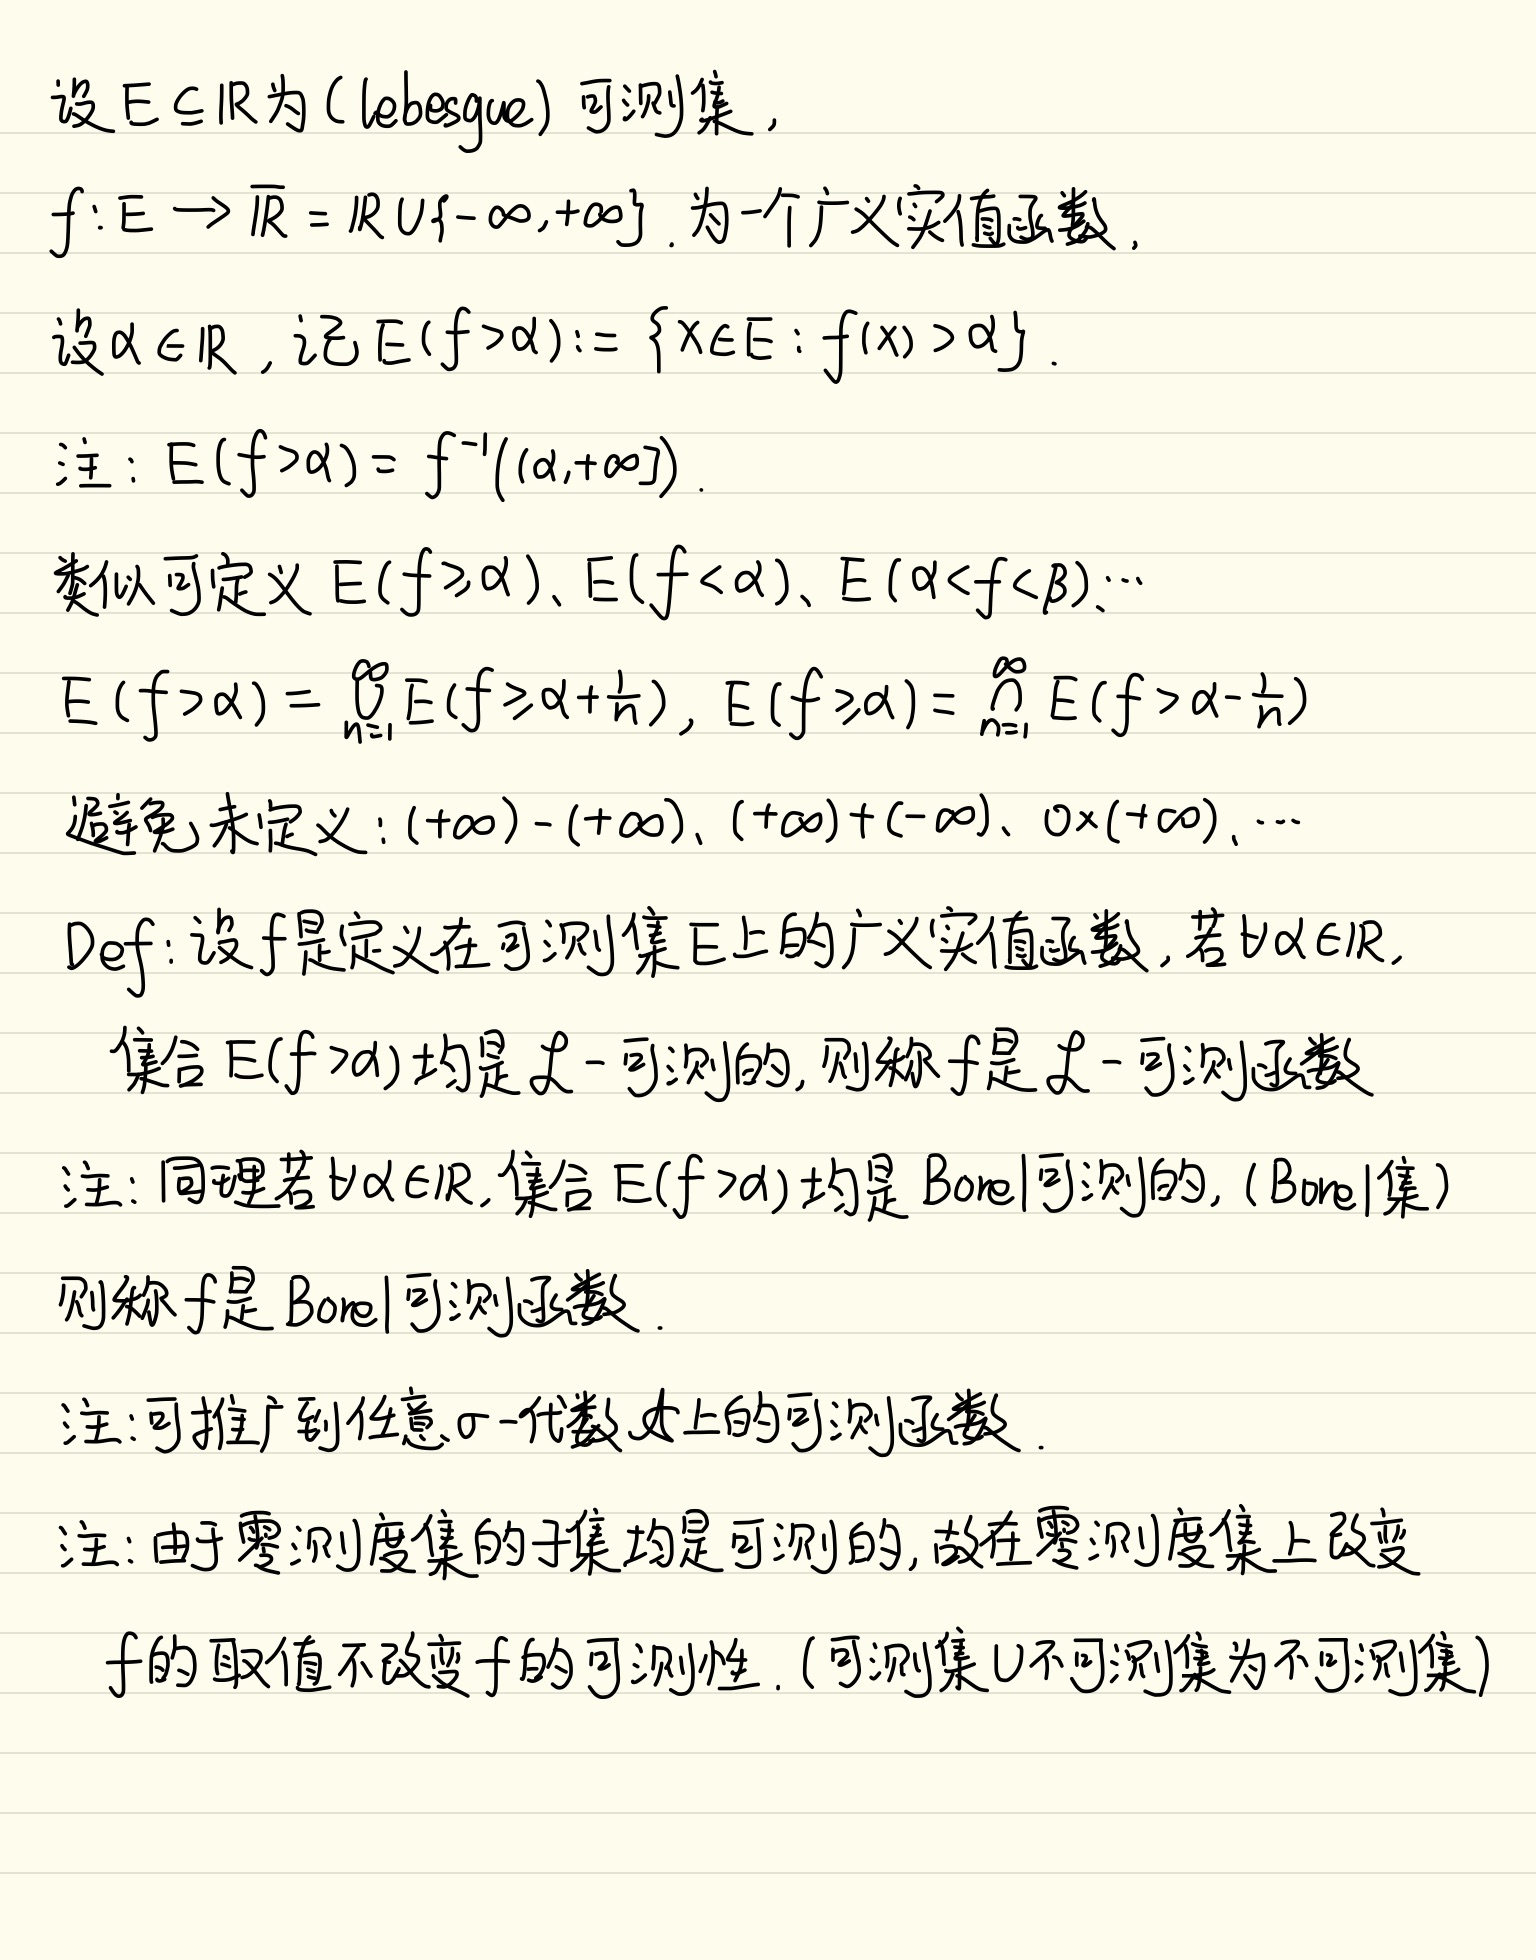 设 E ⊆ ℝ 为 (lebesgue) 可测集,
f: E → ℝ̅ = ℝ ∪ {-∞, +∞}. 为一个广义实值函数,
设 α ∈ ℝ, 记 E(f > α) := {x ∈ E : f(x) > α}.
注: E(f > α) = f⁻¹((α, +∞]).
类似可定义 E(f ≥ α)、E(f < α)、E(α < f < β)、…
E(f > α) = ⋃_{n=1}^{∞} E(f ≥ α + 1/n), E(f ≥ α) = ⋂_{n=1}^{∞} E(f > α - 1/n)
避免未定义: (+∞) - (+∞)、(+∞) + (-∞)、0 × (+∞)、…
Def: 设 f 是定义在可测集 E 上的广义实值函数, 若 ∀α ∈ ℝ,
集合 E(f > α) 均是 ℒ - 可测的, 则称 f 是 ℒ - 可测函数
注: 同理若 ∀α ∈ ℝ, 集合 E(f > α) 均是 Borel 可测的, (Borel 集)
则称 f 是 Borel 可测函数.
注: 可推广到任意 σ-代数 𝒜 上的可测函数.
注: 由于零测度集的子集均是可测的, 故在零测度集上改变
f 的取值不改变 f 的可测性. (可测集 ∪ 不可测集为不可测集)